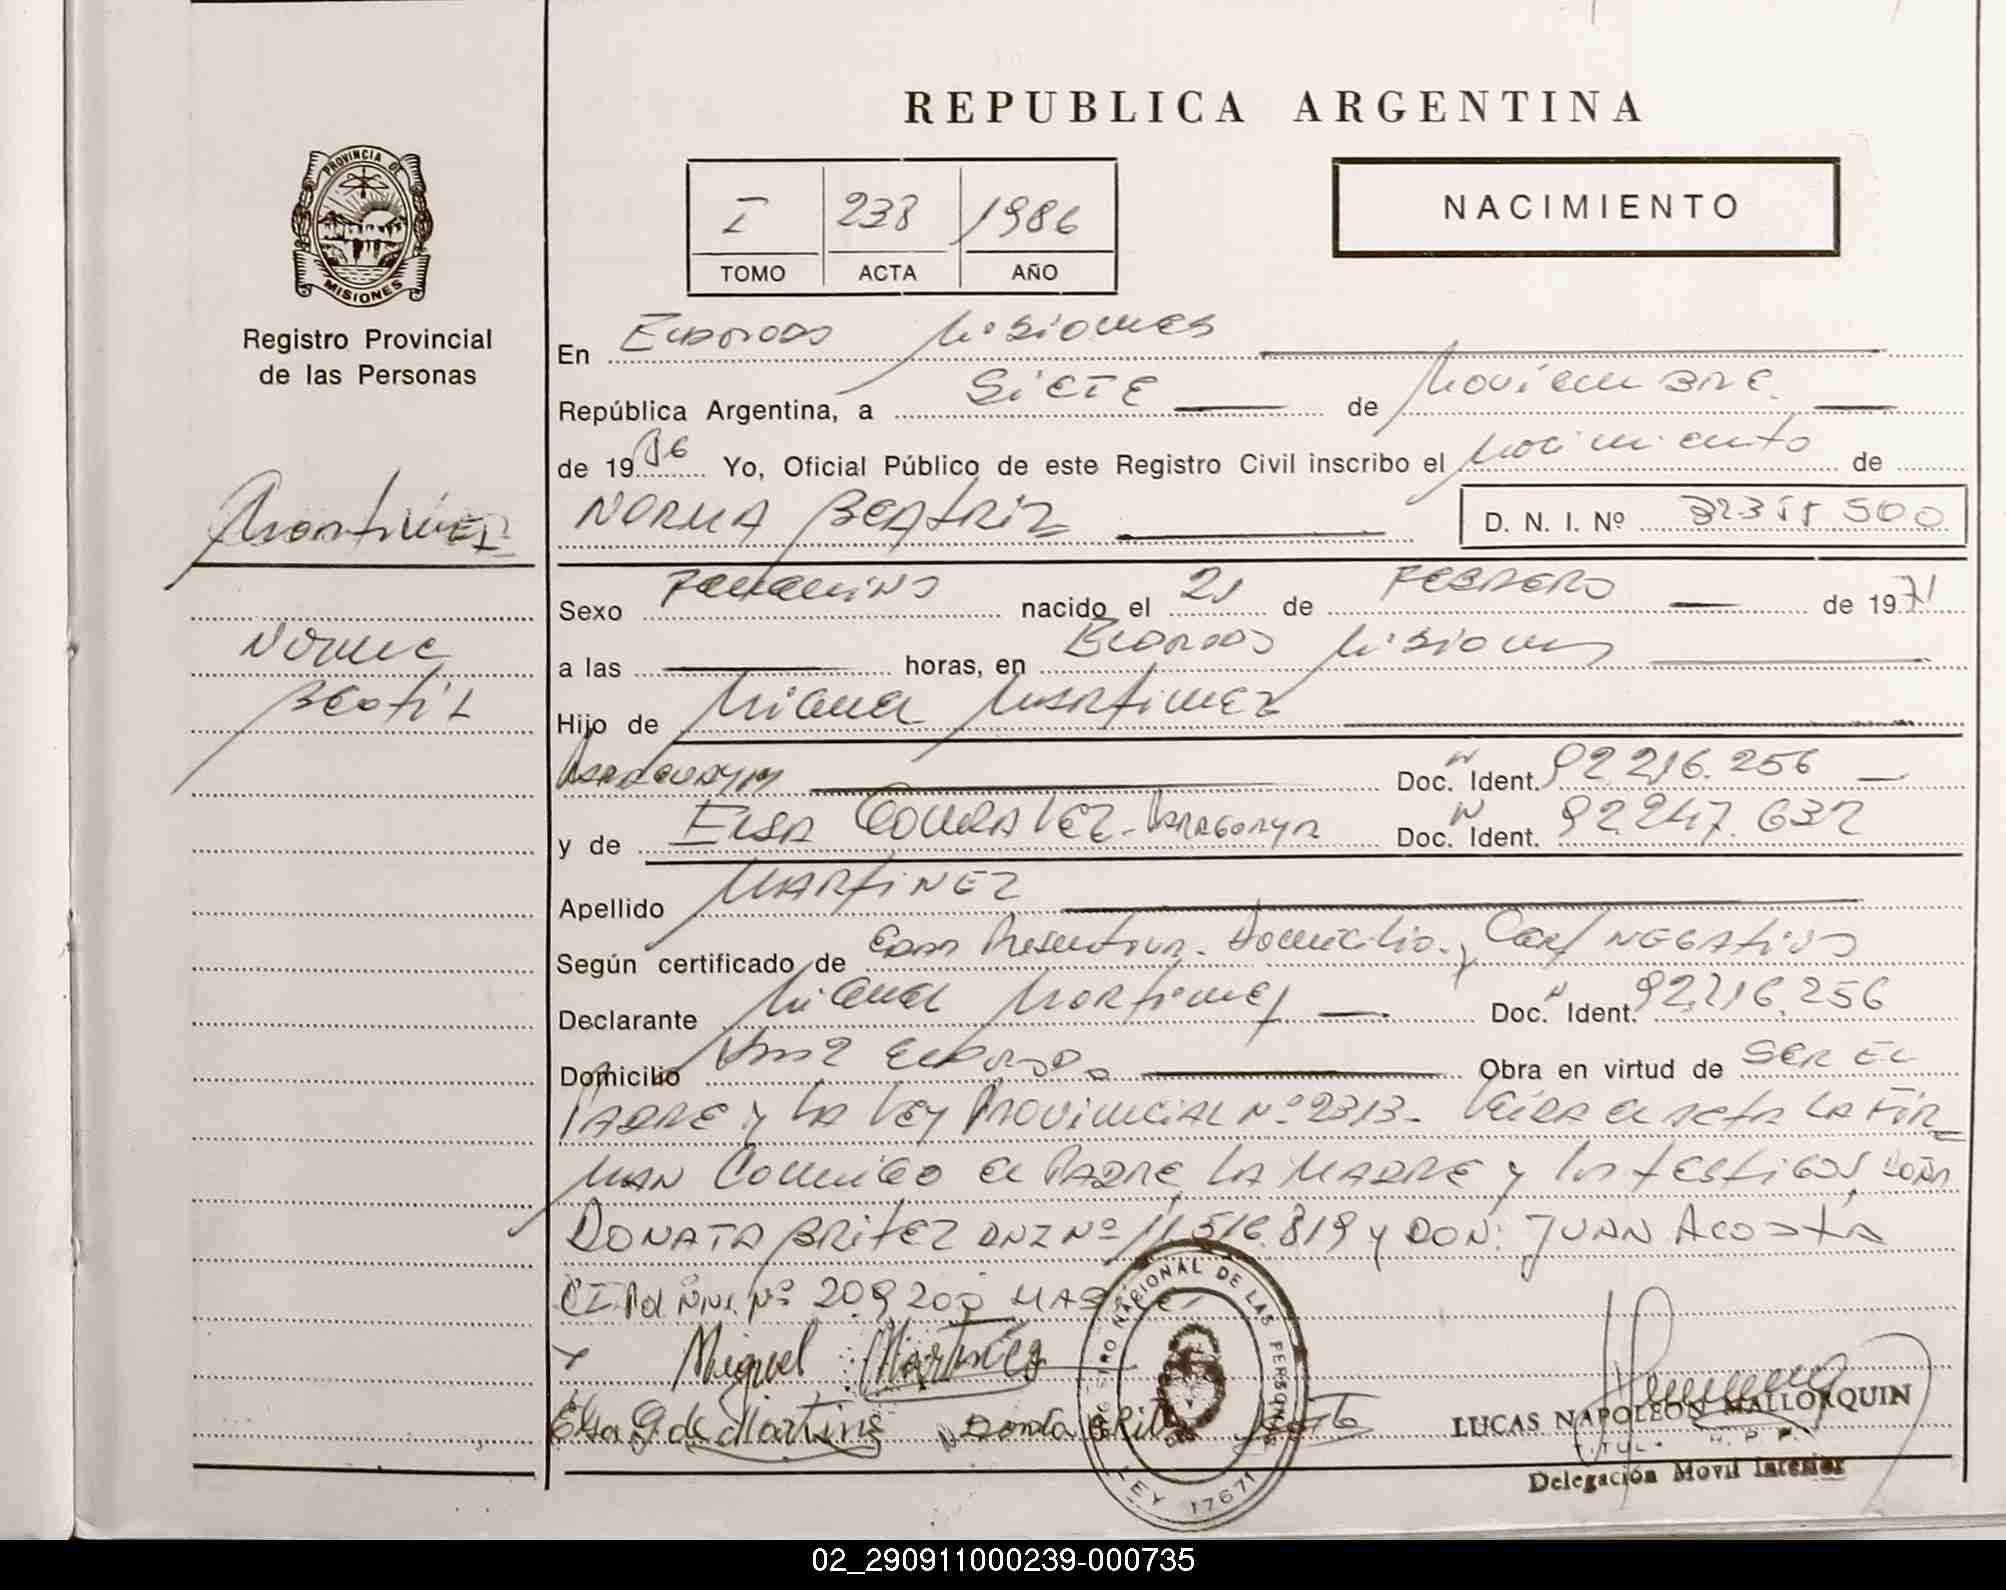 REPUBLICA ARGENTINA
NACIMIENTO
I 238 1986
TOMO ACTA AÑO
PROVINCIA DE
MISIONES
Registro Provincial
de las Personas
Martinez
Norma
Beatriz
En Eldorado Misiones
República Argentina, a Siete de Noviembre
de 1986 Yo, Oficial Público de este Registro Civil inscribo el Nacimiento de
NORMA BEATRIZ D. N. I. Nº 500
Sexo Femenino nacido el 21 de FEBRERO de 1971
a las horas, en Eldorado Misiones
Hijo de Miguel Martinez
Paraguaya Doc. Ident. 92.216.256
y de Elsa Gonzalez - Paraguaya Doc. Ident. 92.247.632
Apellido MARTINEZ
Según certificado de Domicilio y Cert NEGATIVO
Declarante Miguel Martinez Doc. Ident. 92.216.256
Domicilio Eldorado Obra en virtud de SER EL
PADRE y LA LEY PROVINCIAL Nº 2313 - Leida el acta LA FIR
MAN Conmigo el PADRE, LA MADRE y los testigos, Doña
DONATA BRITEZ DNI Nº 11.516.819 y DON: JUAN ACOSTA
CI Nº 209200
Miguel Martinez
Elsa G de Martinez Donata Brit
REGISTRO NACIONAL DE LAS PERSONAS
LEY 17671
LUCAS NAPOLEON MALLORQUIN
TITUL. R. P. P.
Delegación Movil Interior
02_290911000239-000735